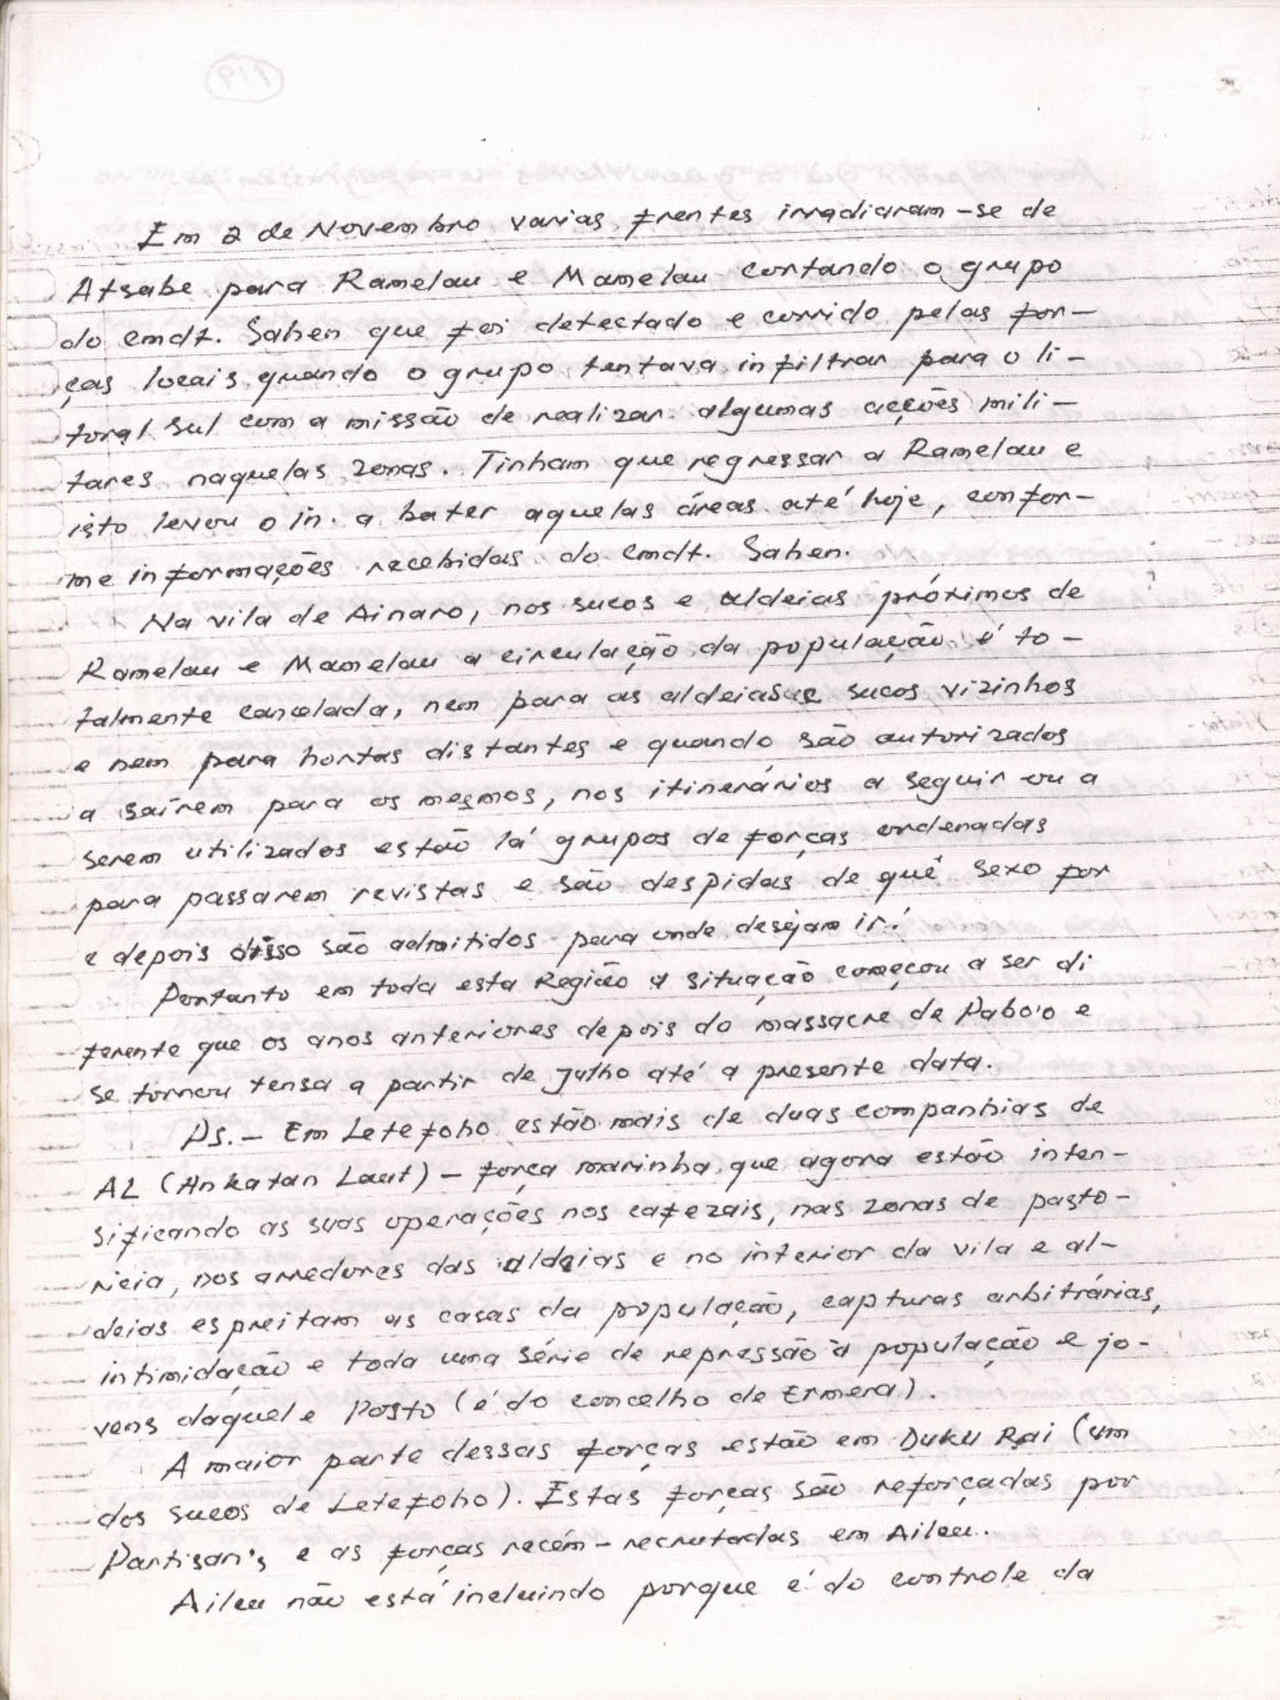 Em 2 de Novembro varias frentes irradiaram-se de
Atsabe para Ramelau e Mamelau contando o grupo
do cmdt. Sahen que foi detectado e corrido pelas for-
ças locais quando o grupo tentava infiltrar para o li-
toral sul com a missão de realizar algumas acções mili-
tares naquelas zonas. Tinham que regressar a Ramelau e
isto levou o in. a bater aquelas áreas até hoje, confor-
me informações recebidas do cmdt. Sahen.
Na vila de Ainaro, nos sucos e aldeias próximos de
Ramelau e Mamelau a circulação da população é to-
talmente cancelada, nem para as aldeias e sucos vizinhos
e nem para hortas distantes e quando são autorizados
a saírem para os mesmos, nos itinerários a seguir ou a
serem utilizados estão lá grupos de forças ordenadas
para passarem revistas e são despidas de quê sexo for
e depois disso são admitidos para onde desejam ir!
Portanto em toda esta Região a situação começou a ser di
ferente que os anos anteriores depois do massacre de Dabo'o e
se tornou tensa a partir de Julho até a presente data.
Ds. - Em Letefoho estão mais de duas companhias de
AL (Ankatan Laut) - força marinha que agora estão inten-
sificando as suas operações nos cafezais, nas zonas de pasto-
ricia, nos arredores das aldeias e no interior da vila e al-
deias espreitam as casas da população, capturas arbitrárias,
intimidação e toda uma série de repressão à população e jo-
vens daquele Posto (é do concelho de Ermera).
A maior parte dessas forças estão em Duku Rai (um
dos sucos de Letefoho). Estas forças são reforçadas por
Partisan's e as forças recém-recrutadas em Aileu.
Aileu não está incluindo porque é do controle da